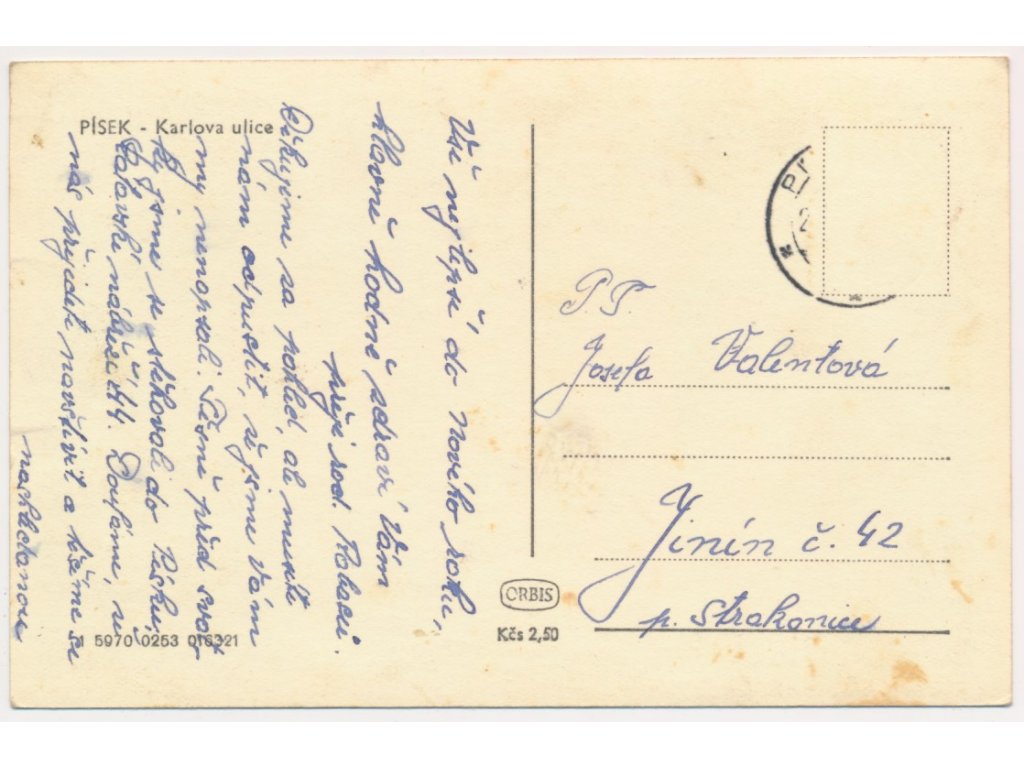 PÍSEK - Karlova ulice
Vše nejlepší do Nového roku,
hlavně hodně zdraví Vám
přejí rod.
Děkujeme za pohled, ale musíte
nám odpustit, že jsme Vám
my nenapsali. Těsně před svát
ky jsme se stěhovali do Písku,
nábřeží 44. Doufáme, že
nás přijdete navštívit a těšíme se
nashledanou
5970 0253 016321
ORBIS
Kčs 2,50
P.T.
Josefa Valentová
Jinín č. 42
p. Strakonice